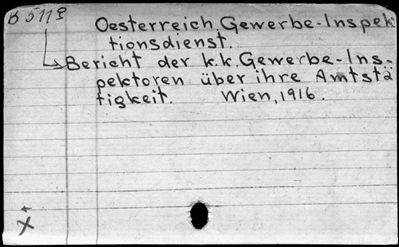 B 511
Oesterreich, Gewerbe-Inspek
tionsdienst.
Bericht der k.k. Gewerbe-Ins-
pektoren über ihre Amtstä
tigkeit. Wien, 1916.
x